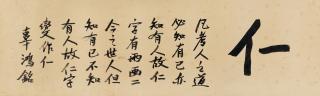 仁
凡人之道
必知有己亦
知有人故仁
字有两二
今之世人但
知有己不知
有人故仁字
變作仁
辜鴻銘